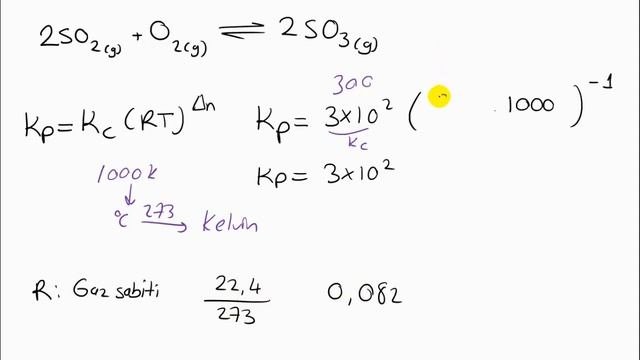 2SO₂(g) + O₂(g) ⇌ 2SO₃(g)
300
Kp = Kc (RT)^Δn
Kp = 3×10² ( 1000 )⁻¹
Kc
Kp = 3×10²
1000k
↓
°C 273 → Kelvin
R: Gaz sabiti 22,4/273 0,082